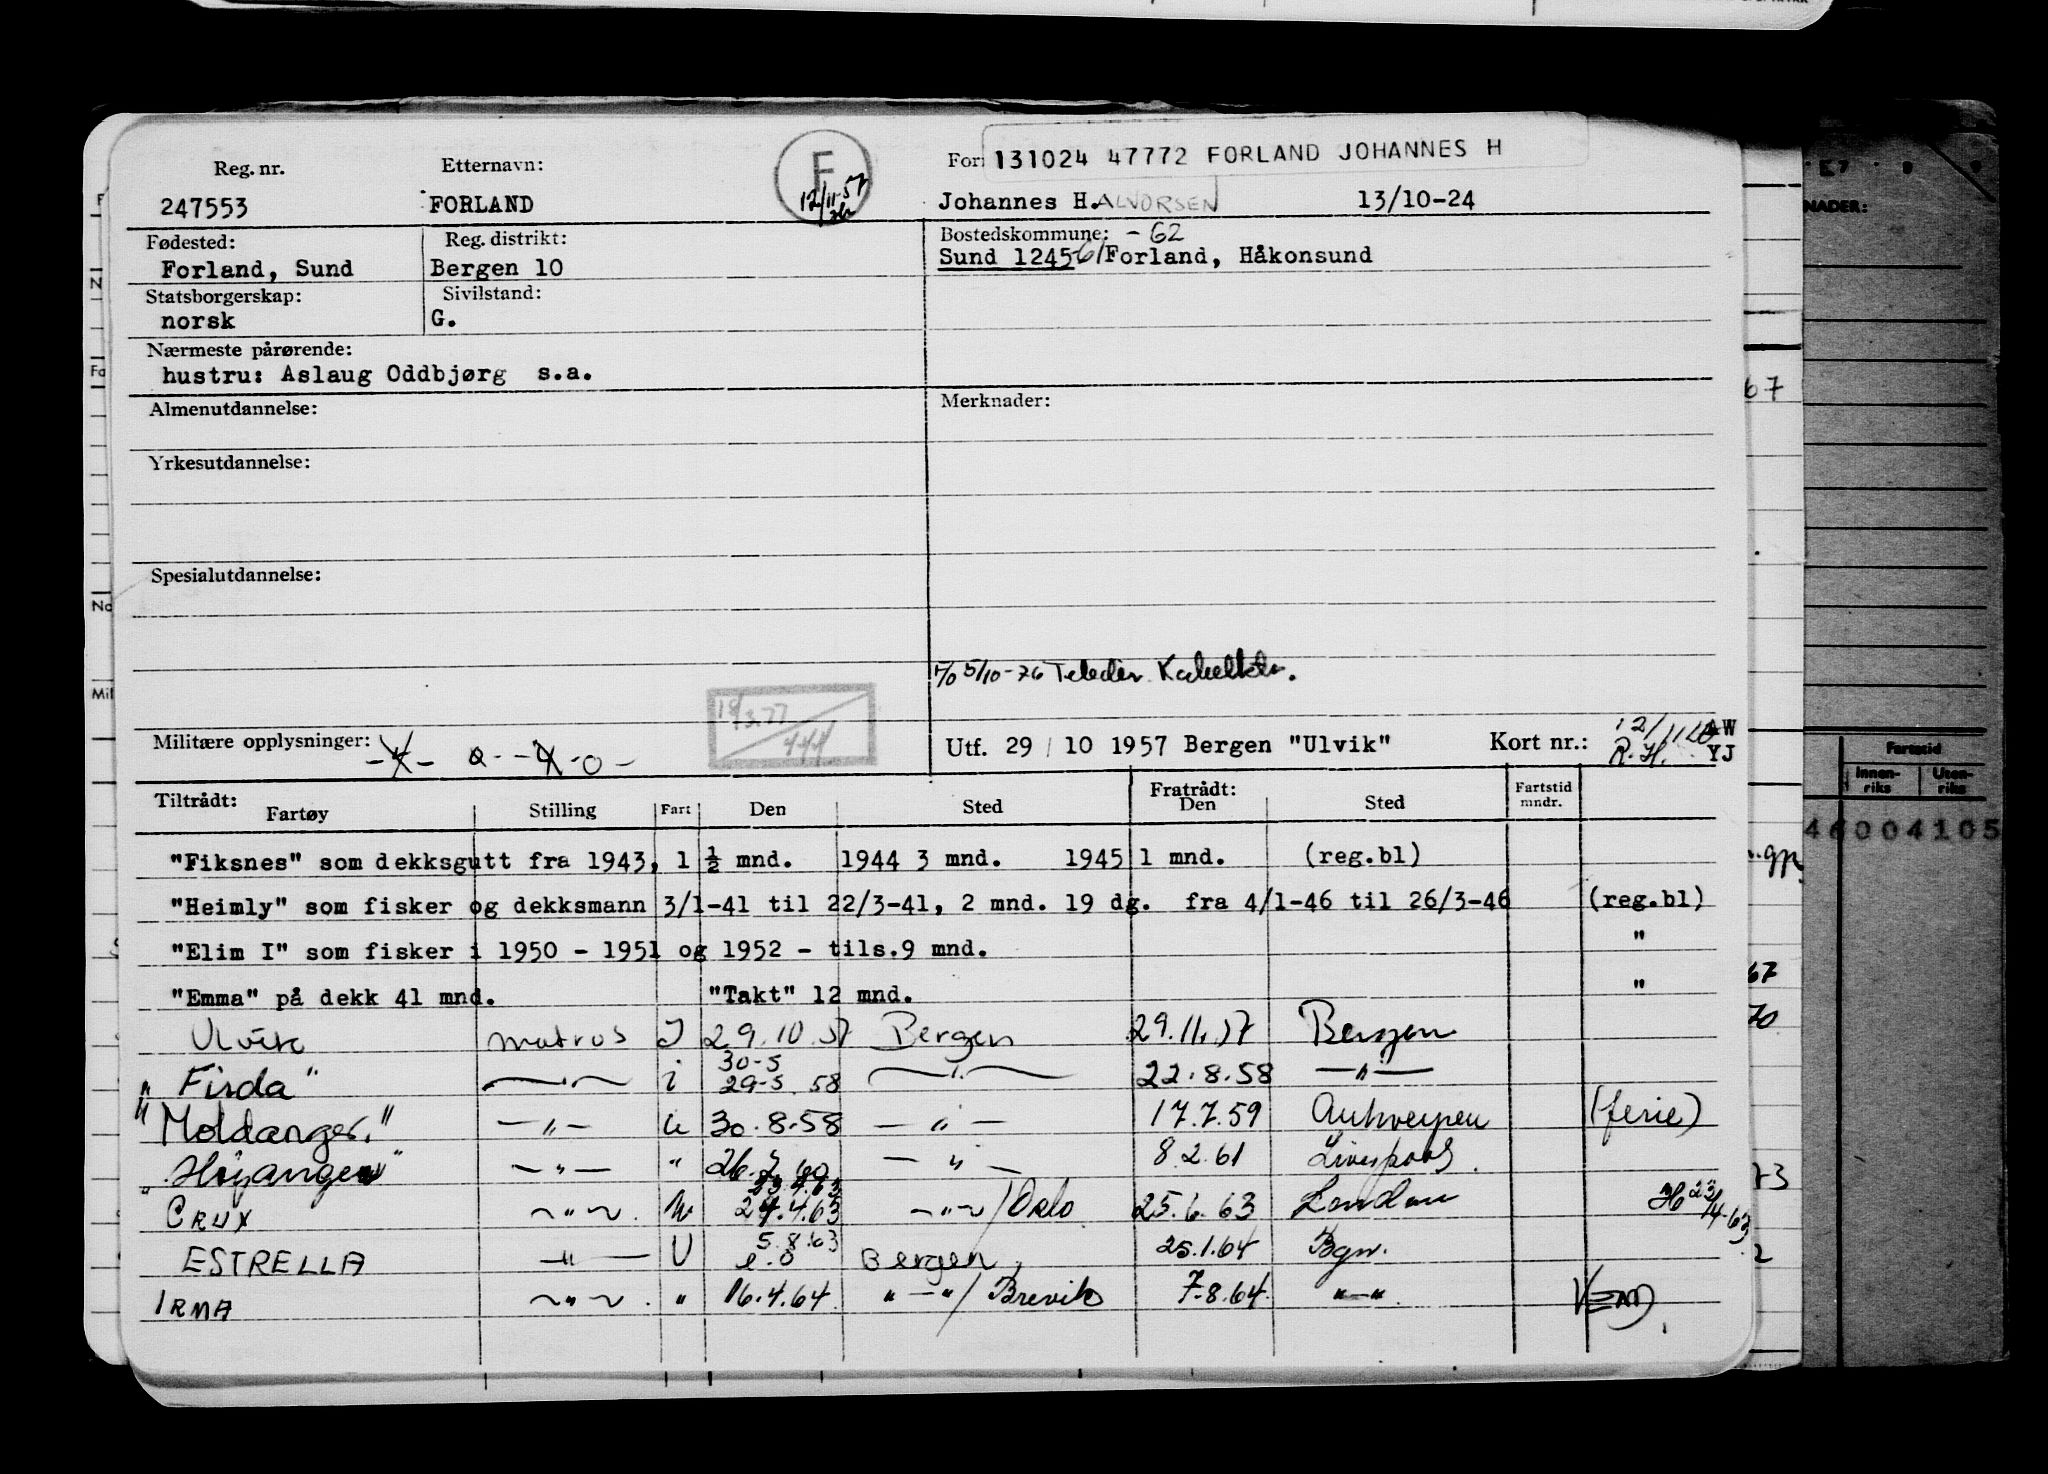 Reg. nr. Etternavn: F For: 131024 47772 FORLAND JOHANNES H
247553 FORLAND 12/11-57 Johannes H.ALVORSEN 13/10-24
Fødested: Reg. distrikt: Bostedskommune: -62
Forland, Sund Bergen 10 Sund 1245-61 Forland, Håkonsund
Statsborgerskap: Sivilstand:
norsk G.
Nærmeste pårørende:
hustru: Aslaug Oddbjørg s.a.
Almenutdannelse: Merknader:
Yrkesutdannelse:
Spesialutdannelse:
5/10-76 Teledir.
18/3.77
Militære opplysninger: Utf. 29/10 1957 Bergen "Ulvik" Kort nr.: R.H. AW
YJ
Tiltrådt: Fratrådt: Fartstid
Fartøy Stilling Fart Den Sted Den Sted mndr.
"Fiksnes" som dekksgutt fra 1943, 1 ½ mnd. 1944 3 mnd. 1945 1 mnd. (reg.bl)
"Heimly" som fisker og dekksmann 3/1-41 til 22/3-41, 2 mnd. 19 dg. fra 4/1-46 til 26/3-46 (reg.bl)
"Elim I" som fisker i 1950 - 1951 og 1952 - tils.9 mnd. "
"Emma" på dekk 41 mnd. "Takt" 12 mnd. "
Ulvik matros I 29.10.57 Bergen 29.11.57 Bergen
30-5
"Firda" —"— i 29-5.58 —"— 22.8.58 —"—
"Moldanger." —"— u 30.8.58 —"— 17.7.59 Antwerpen (ferie)
"Høyanger" —"— " 26.2.60 —"— 8.2.61 Liverpool
23.4.63
CRUX —"—. 24.4.63 —"—/Oslo 25.6.63 London 23/4-63
5.8.63
ESTRELLA —"— U e.o Bergen 25.1.64 Bgn.
IRMA —"—. " 16.4.64. "—"/Brevik 7.8.64. "—". VEND
NADER:
Fartstid
Innen-riks Uten-riks
46004105